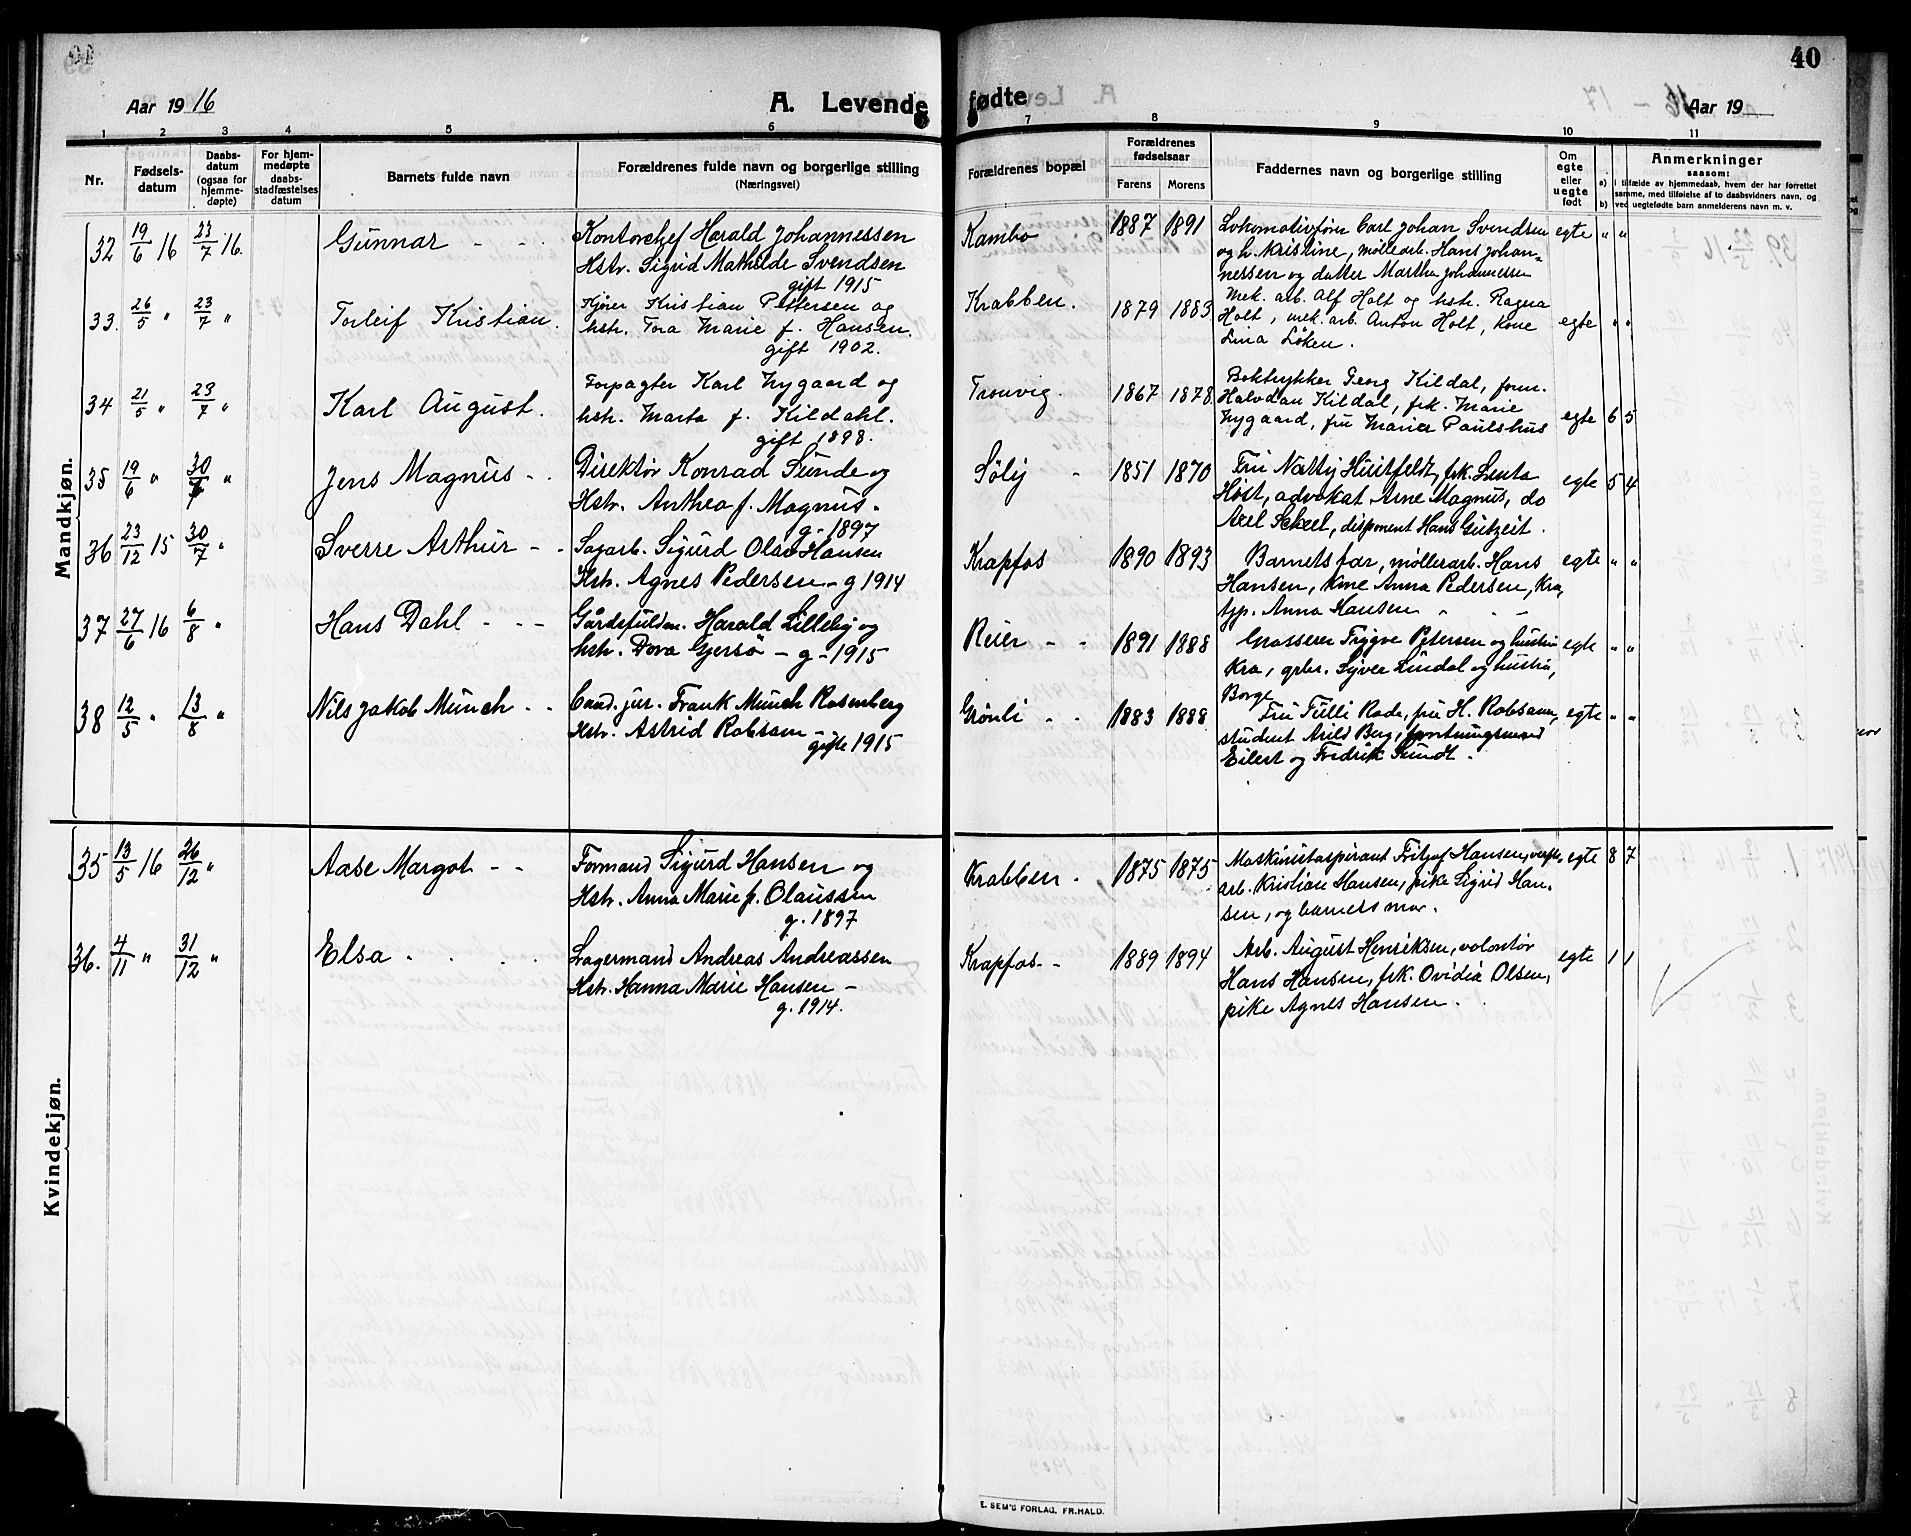 40
Aar 19 16
A. Levende fødte
Aar 19
1 2 3 4 5 6 7 8 9 10 11
Nr.
Fødsels-
datum
Daabs-
datum
(ogsaa for
hjemme-
døpte)
For hjem-
medøpte
daabs-
stadfæstelses
datum
Barnets fulde navn
Forældrenes fulde navn og borgerlige stilling
(Næringsvei)
Forældrenes bopæl
Forældrenes
fødselsaar
Farens Morens
Faddernes navn og borgerlige stilling
Om
egte
eller
uegte
født
a)
b)
Anmerkninger
saasom:
I tilfælde av hjemmedaab, hvem der har forrettet
samme, med tilføielse af to daabsvidners navn, og
ved uegtefødte barn anmelderens navn m. v.
Mandkjøn.
32 19/6 16 23/7 16. Gunnar - - -
Kontorchef Harald Johannessen
Hstr. Sigrid Mathilde Svendsen
gift 1915
Kambo 1887 1891
Lokomotivfører Carl Johan Svendsen
og h. Kristine, møllearb. Hans Johan-
nessen og datter Martha Johannessen
egte " "
33. 26/5 " 23/7 " Torleif Kristian.
Kjører Kristian Pettersen og
hstr. Tora Marie f. Hansen.
gift 1902.
Krabben. 1879 1883
Mek. arb. Alf Holt og hstr. Ragna
Holt, mek. arb. Anton Holt, kone
Lina Løken.
egte " "
34 21/5 " 23/7 " Karl August.
Forpagter Karl Nygaard og
hstr. Marta f. Kildahl.
gift 1898.
Tronvig. 1867 1878
Boktrykker Georg Kildal, form.
Halvdan Kildal, frk. Marie
Nygaard, fru Marier Paulshus
egte 6 5
35 19/6 " 30/7 " Jens Magnus - -
Direktør Konrad Sunde og
Hstr. Anthea f. Magnus.
g- 1897
Sølij - 1851 1870
Fru Natty Huitfeldt, frk. Lenta
Høst, advokat Arne Magnus, do
Axel Scheel, disponent Hans Gutzeit.
egte 5 4
36 23/12 15 30/7 " Sverre Arthur - -
Sagarb. Sigurd Olav Hansen
Hstr. Agnes Pedersen - g 1914
Krapfos 1890 1893
Barnets far, møllerarb. Hans
Hansen, kone Anna Pedersen, Kra,
typ. Anna Hansen " - -
egte " "
37 27/6 16 6/8 " Hans Dahl - - -
Gårdsfuldm. Harald Lilleby og
hstr. Dora Gjersø - g - 1915
Reier - - 1891 1888
Grosserer Trygve Petersen og hustru
Kra, grbr. Syver Lindal og hustru,
Borge
egte " "
38 12/5 " 13/8 " Nils Jakob Munch - -
Cand. jur. Frank Munch Rosenberg
Hstr. Astrid Robsam -
gifte 1915
Grønli - - 1883 1888
Fru Tulli Rode, fru H. Robsam,
student Arild Berg,
Eilert og Fredrik Sundt.
egte " "
Kvindekjøn.
35 13/5 16 26/12 " Aase Margot - -
Formand Sigurd Hansen og
Hstr. Anna Marie f. Olaussen
g. 1897
Krabben - 1875 1875
Maskinistaspirant Fritjof Hansen, verfts,
arb. Kristian Hansen, pike Sigrid Han-
sen, og barnets mor.
egte 8 7
36. 4/11 " 31/12 " Elsa - - - -
Lagermand Andreas Andreassen
Hstr. Hanna Marie Hansen -
g. 1914.
Krapfos - - 1889 1894
Arb. August Henriksen, volontør
Hans Hansen, frk. Ovidia Olsen,
pike Agnes Hansen.
egte 1 1
E. SEM'S FORLAG, FR.HALD.